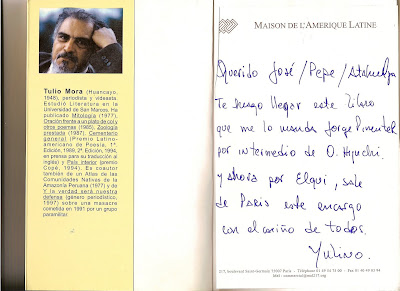 Tulio Mora (Huancayo,
1948), periodista y videasta.
Estudió Literatura en la
Universidad de San Marcos. Ha
publicado Mitología (1977),
Oración frente a un plato de col y
otros poemas (1985), Zoología
prestada (1987), Cementerio
general (Premio Latino-
americano de Poesía, 1ª
Edición, 1989, 2ª. Edición, 1994,
en prensa para su traducción al
inglés) y País interior (premio
Copé, 1994). Es coautor
también de un Atlas de las
Comunidades Nativas de la
Amazonía Peruana (1977) y de
Y la verdad será nuestra
defensa (género periodístico,
1997) sobre una masacre
cometida en 1991 por un grupo
paramilitar.
MAISON DE L'AMERIQUE LATINE
Querido José / Pepe /
Te hago llegar este libro
que me lo manda Jorge Pimentel
por intermedio de O. Higuchi,
y ahora por Elqui, sale
de París este encargo
con el cariño de todos.
Yulino.
217, boulevard Saint-Germain 75007 Paris - Téléphone 01 49 54 75 00 - Fax 01 45 49 63 94